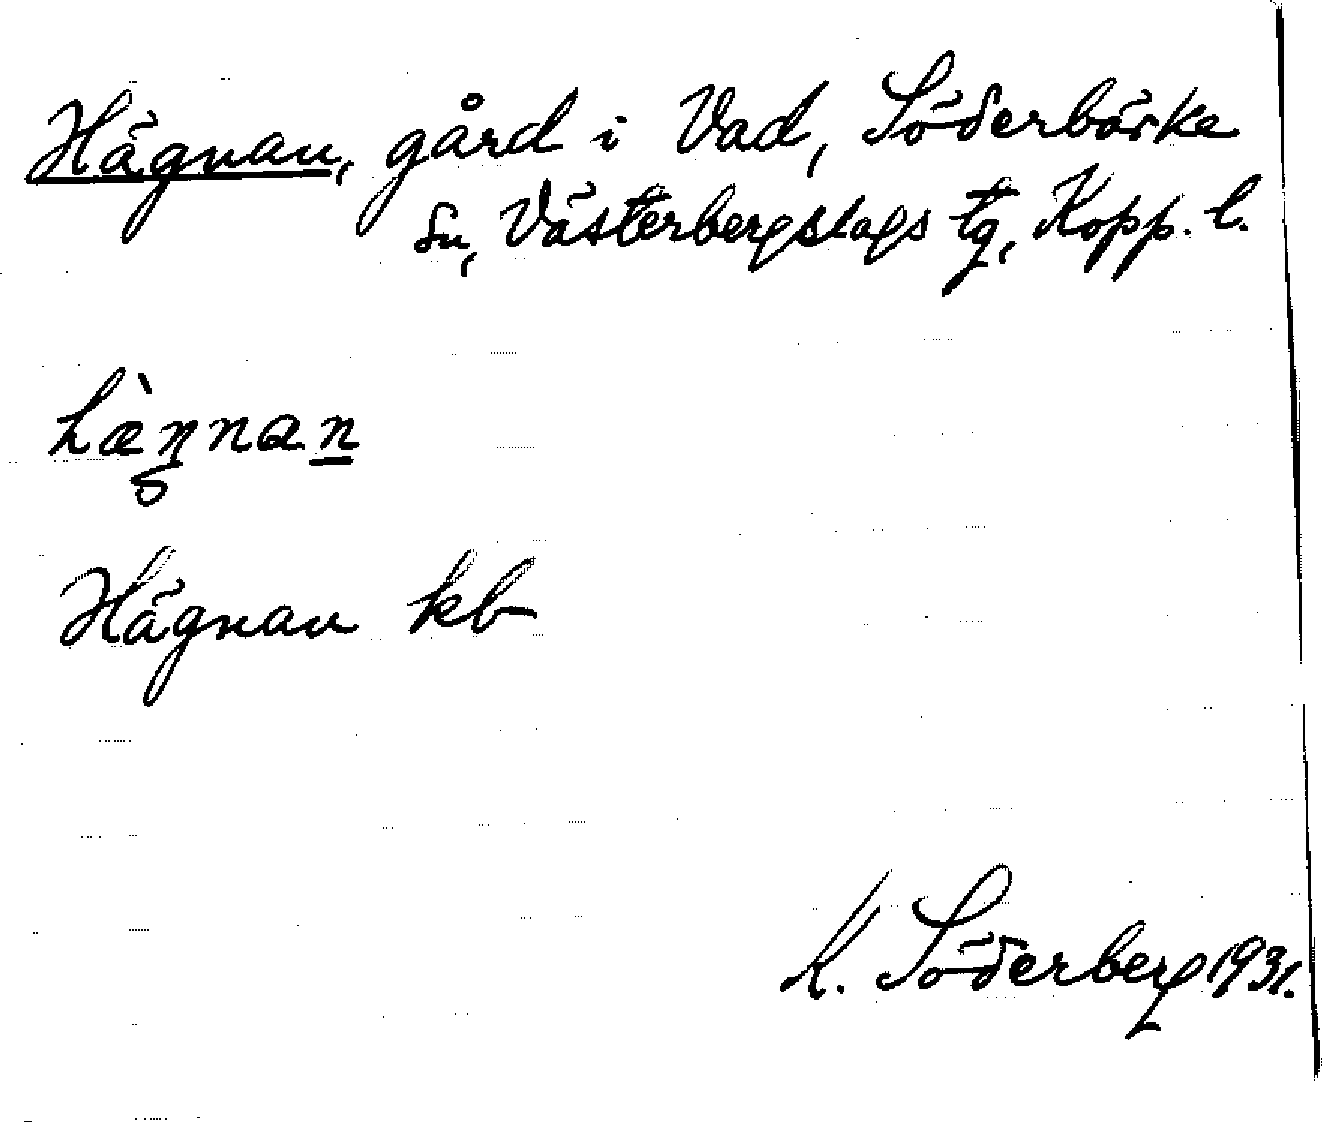 Hägnan, gård i Vad, Söderbärke
sn, Västerbergslags tg, Kopp. l.
hæ̀ŋnan
Hägnan kb
K. Söderberg 1931.